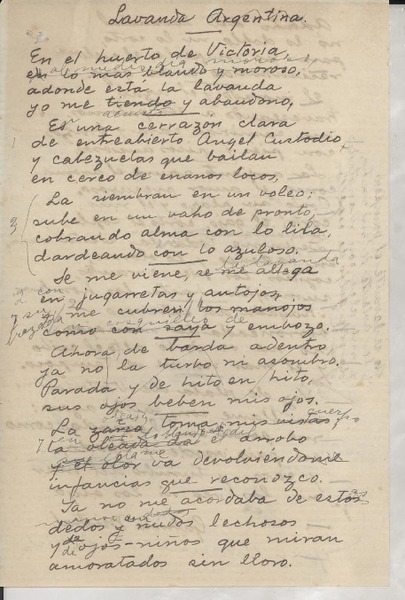 Lavanda Argentina.
En el huerto de Victoria,
en lo más blando y moroso,
adonde esta la lavanda
yo me tiendo y abandono,
acuesto
Es una cerrazón clara
de entreabierto Angel Custodio
y cabezuelas que bailan
en cerco de enanos locos.
3
La siembran en un voleo:
sube en un vaho de pronto,
cobrando alma con lo lila,
dardeando con lo azuloso.
la lavanda
Se me viene, se me allega
en jugarretas y antojos,
me cubren los manojos
como con saya y embozo.
Ahora de barda adentro
ya no la turbo ni asombro.
Parada y de hito en hito,
sus ojos beben mis ojos.
La zarza, toma mis vistas,
cuerpo
la oleada da e arrobo
y el olor va devolviéndome
infancias que reconozco.
Ya no me acordaba de estos
dedos y nudos lechosos
y de ojos-niños que miran
amoratados sin lloro.